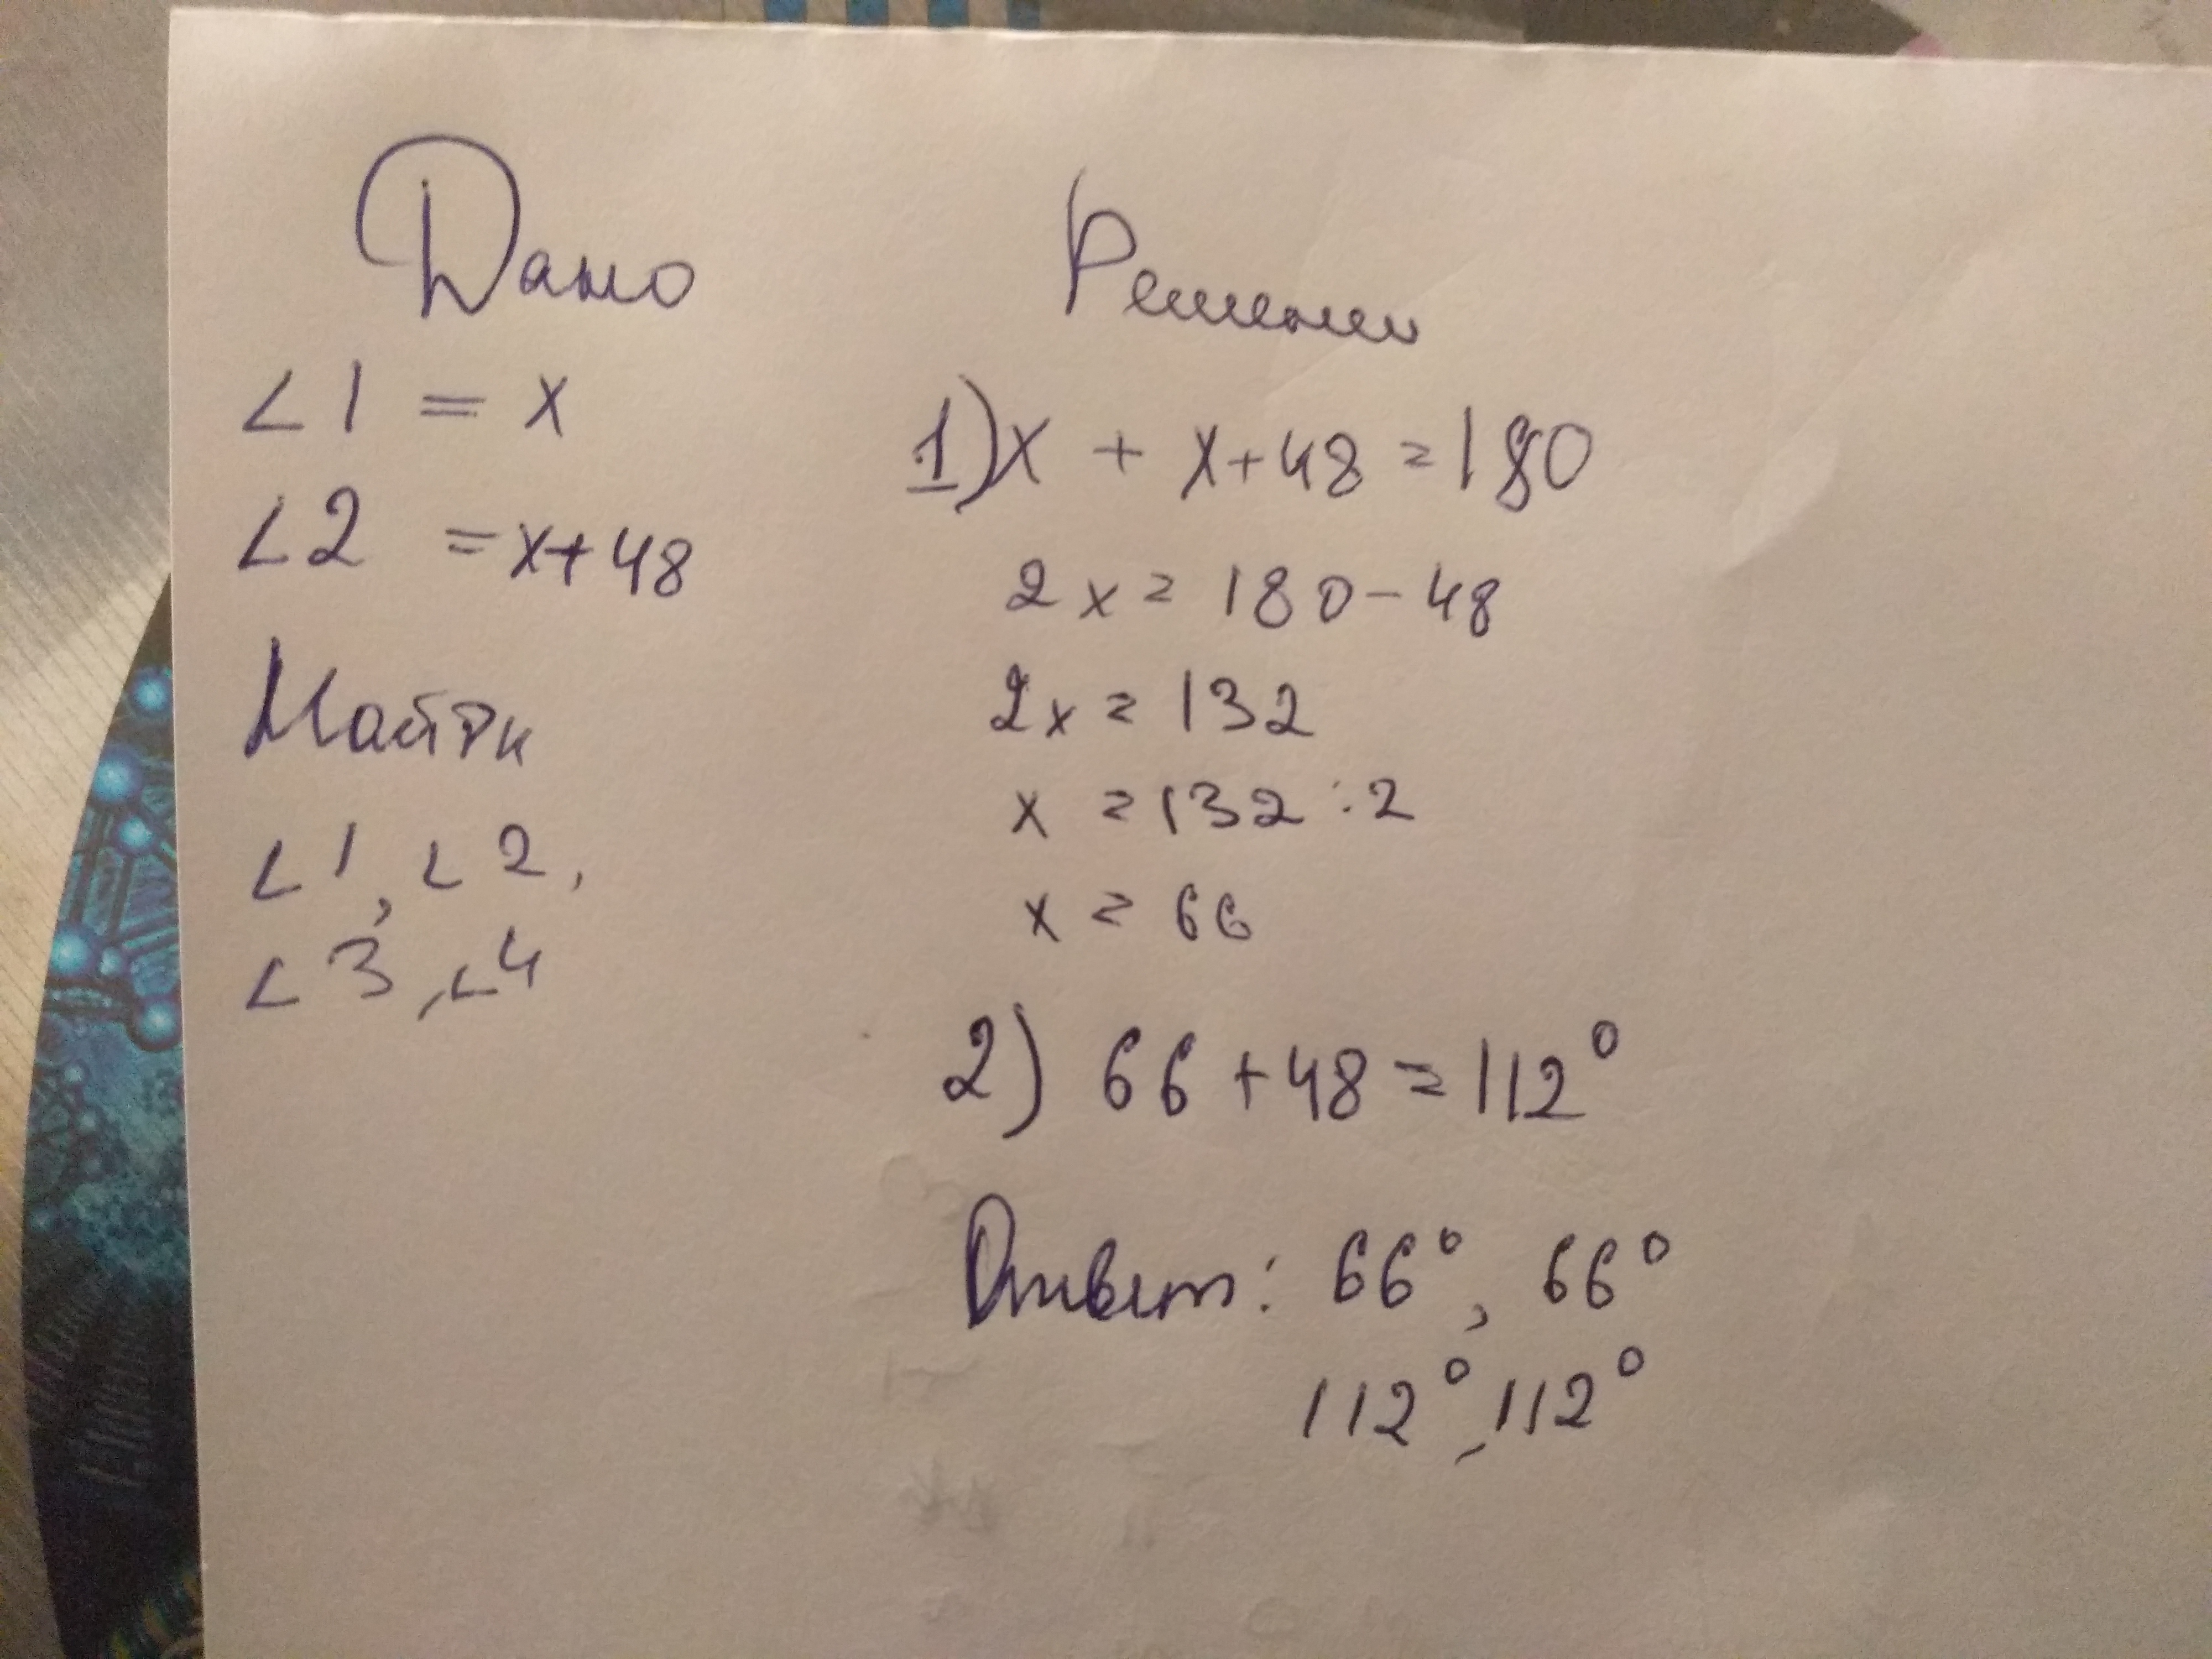 Дано
∠1 = x
∠2 = x+48
Найти
∠1, ∠2,
∠3, ∠4
Решени
1) x + x+48 = 180
2x = 180 - 48
2x = 132
x = 132 : 2
x = 66
2) 66 + 48 = 112°
Ответ: 66°, 66°
112°, 112°